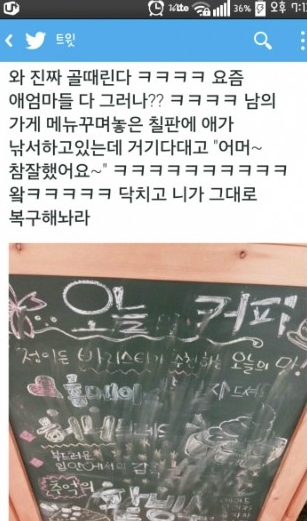 36% 오후 7:1
트윗
와 진짜 골때린다 ㅋㅋㅋㅋ 요즘
애엄마들 다 그러나?? ㅋㅋㅋㅋ 남의
가게 메뉴꾸며놓은 칠판에 애가
낚서하고있는데 거기다대고 "어머~
참잘했어요~" ㅋㅋㅋㅋㅋㅋㅋㅋㅋㅋ
왘ㅋㅋㅋㅋㅋ 닥치고 니가 그대로
복구해놔라
오늘의 커피
정이든 바리스타가 추천하는 오늘의 맛!
홈메이드
추억의
팥빙